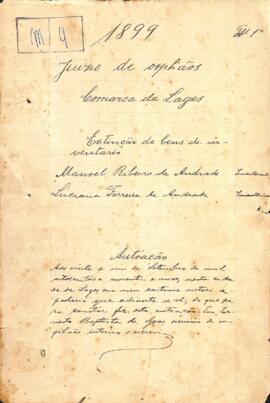 M 4
1899
Juizo de orphãos
Comarca de Lages
Extinção de bens de in-
ventario
Manoel Ribeiro de Andrade
Luciana Ferreira de Andrade
Autoação
Aos vinte e um de Setembro de mil
oitocentos e noventa e nove, nesta cida-
de de Lages em meu cartorio autoei a
que adiante se vê, do que pa-
ra constar fiz esta autoação. Eu, Er-
nesto Baptista de Goes, escrivão de
orphãos interino o escrevi